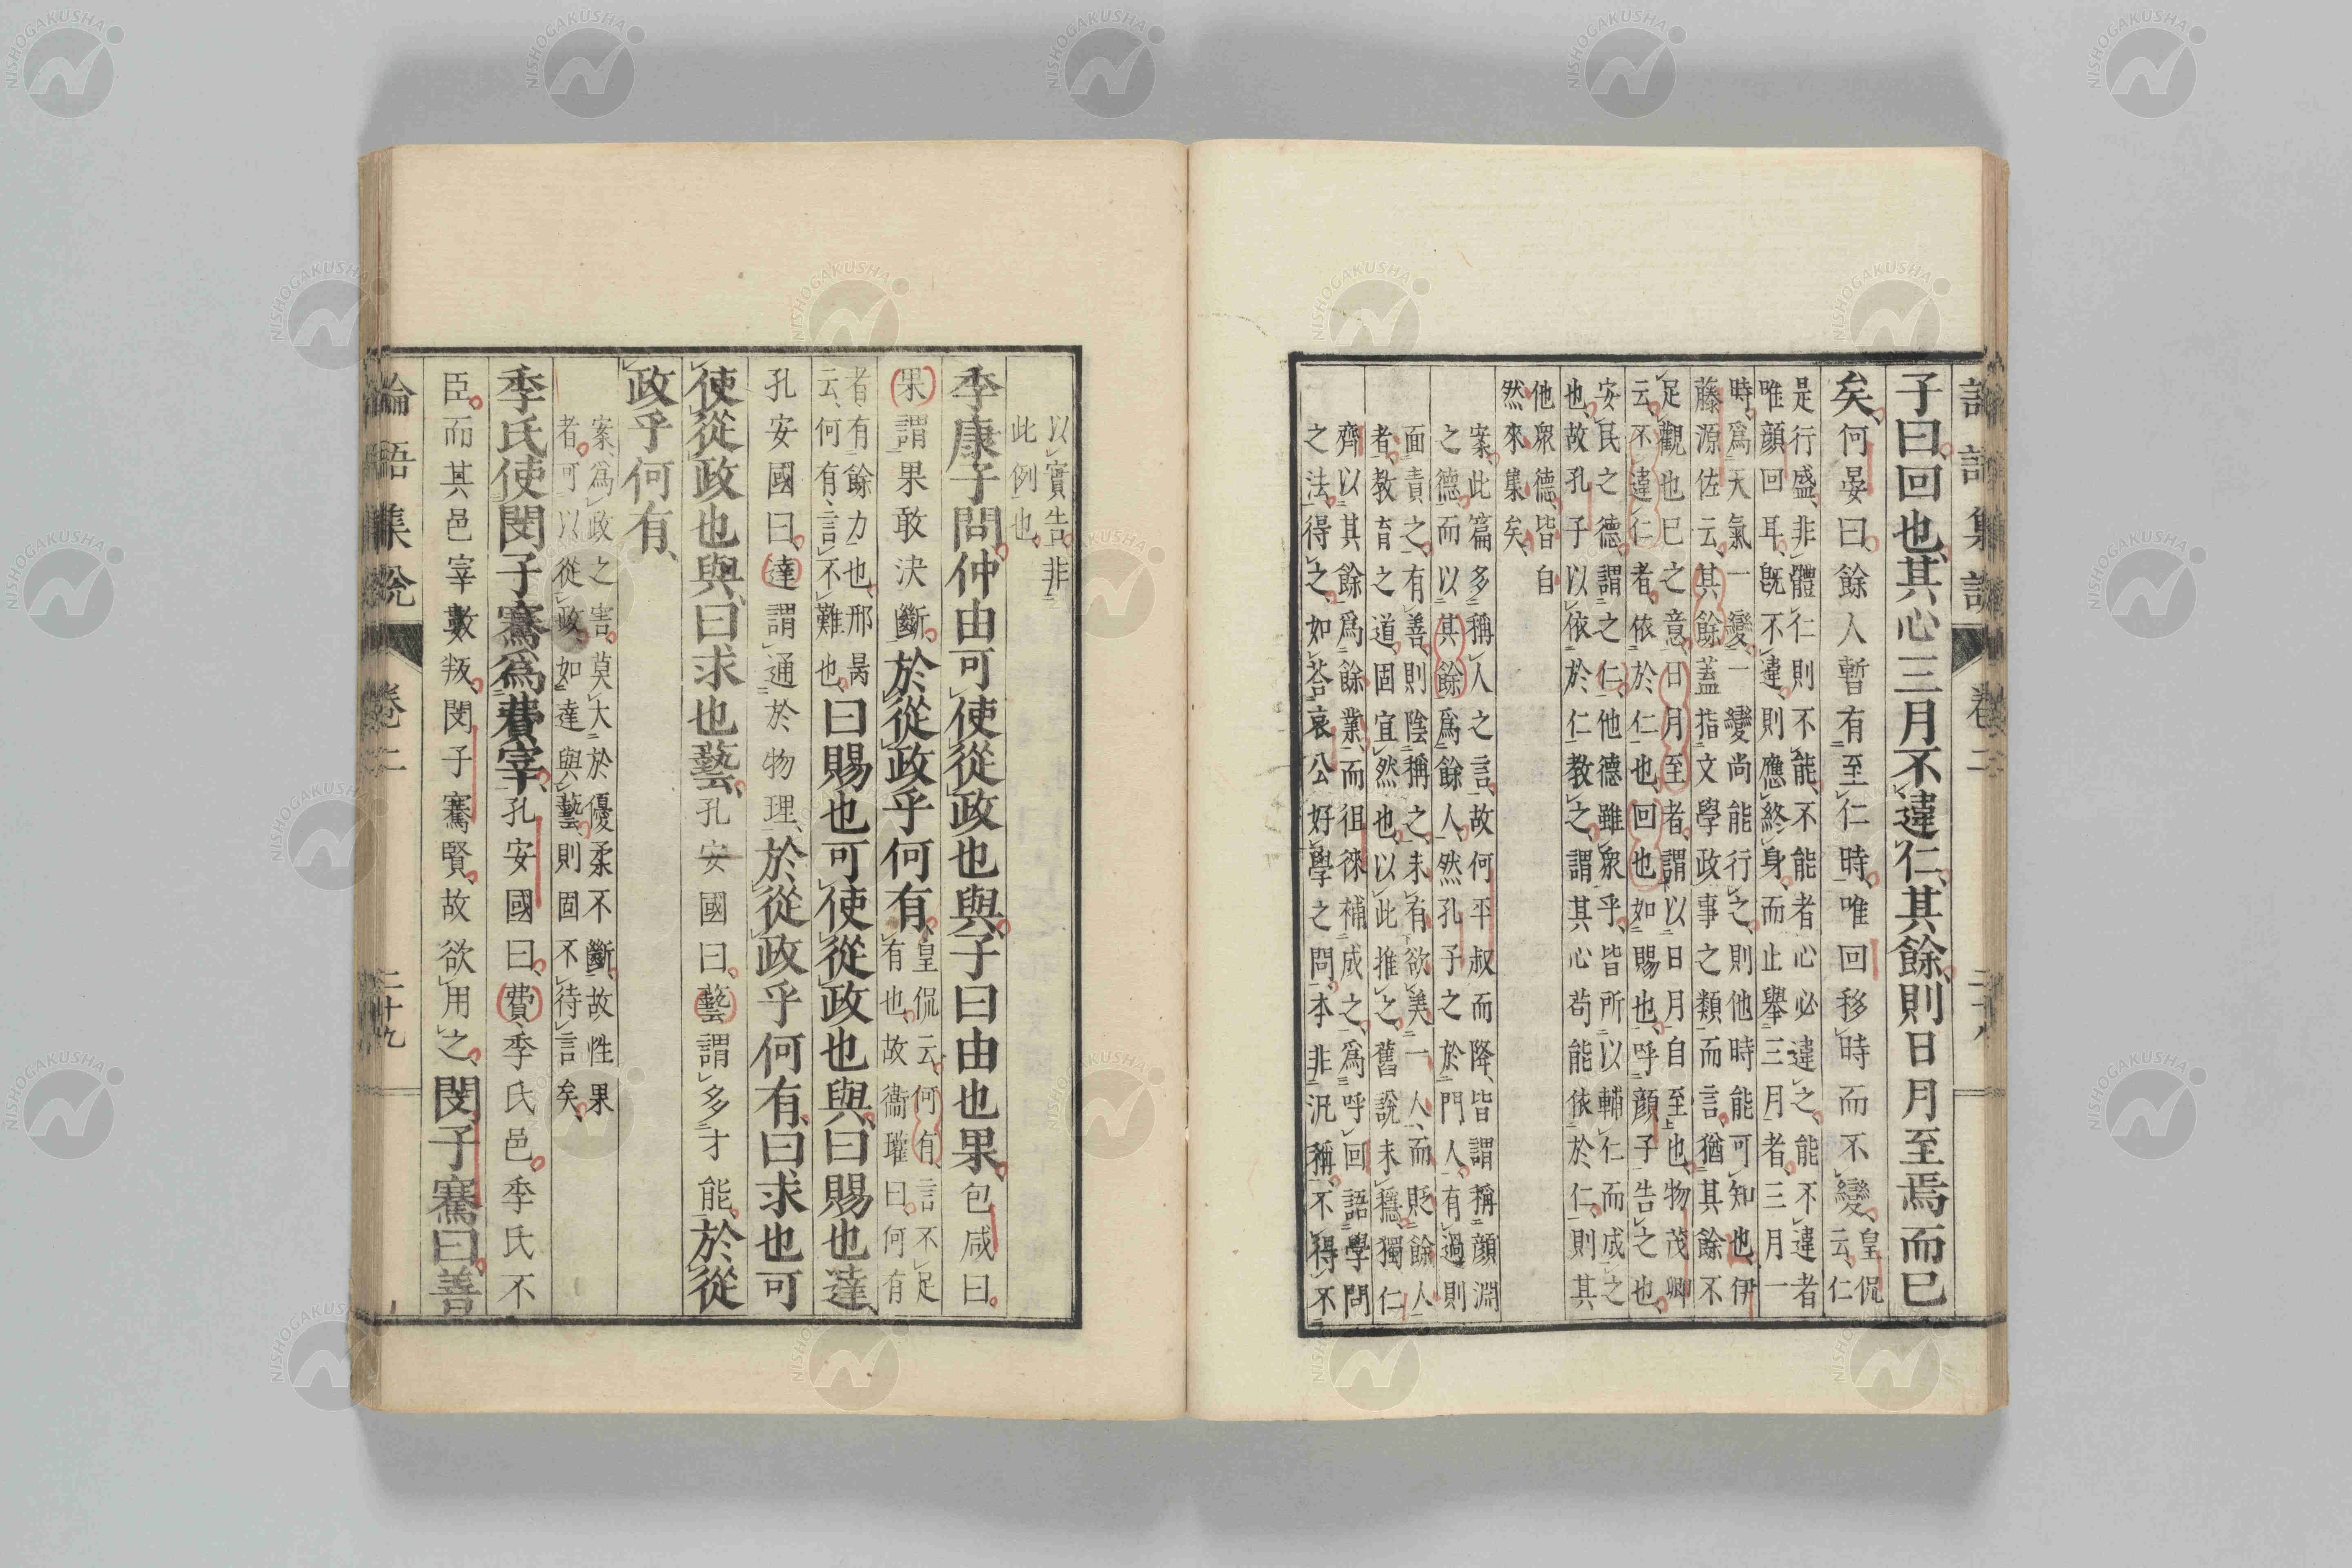 論語集說 卷二 二十八
子曰、回也、其心三月不違仁、其餘、則日月至焉而已
矣、何晏曰、餘人暫有至仁時、唯回移時而不變、皇侃
云、仁
是行盛、非體仁則不能、不能者心必違之、能不違者
唯顏回耳、既不違、則應終身、而止舉三月者、三月一
時、爲天氣一變、一變尚能行之、則他時能可知也、伊
藤源佐云、其餘蓋指文學政事之類而言、猶其餘不
足觀也已之意、日月至者、謂以日月自至也、物茂卿
云、不違仁者、依於仁也、回也、如賜也、呼顏子告之也、
安民之德、謂之仁、他德雖衆乎、皆所以輔仁而成之
也、故孔子以依於仁教之、謂其心苟能依於仁、則其
他衆德、皆自
然來集矣、
案、此篇多稱人之言、故何平叔而降、皆謂稱顏淵
之德、而以其餘爲餘人、然孔子之於門人、有過則
面責之、有善則陰稱之、未有欲美一人、而貶餘人
者、教育之道、固宜然也、以此推之、舊說未穩、獨仁
齊以其餘爲餘業、而徂徠補成之、爲呼回語學問
之法、得之、如荅哀公好學之問、本非汎稱、不得不
以實告、非
此例也、
季康子問、仲由可使從政也與、子曰由也果、包咸曰、
果謂果敢決斷、於從政乎何有、皇侃云、何有、言不足
有也、故衞瓘曰、何有
者、有餘力也、邢昺
云、何有、言不難也、曰賜也可使從政也與、曰賜也達、
孔安國曰、達謂通於物理、於從政乎何有、曰求也可
使從政也與、曰求也藝、孔安國曰、藝謂多才能、於從
政乎何有、
案、爲政之害、莫大於優柔不斷、故性果
者、可以從政、如達與藝、則固不待言矣、
季氏使閔子騫爲費宰、孔安國曰、費、季氏邑、季氏不
臣、而其邑宰數叛、閔子騫賢、故欲用之、閔子騫曰、善
論語集說 卷二 二十九
NISHOGAKUSHA